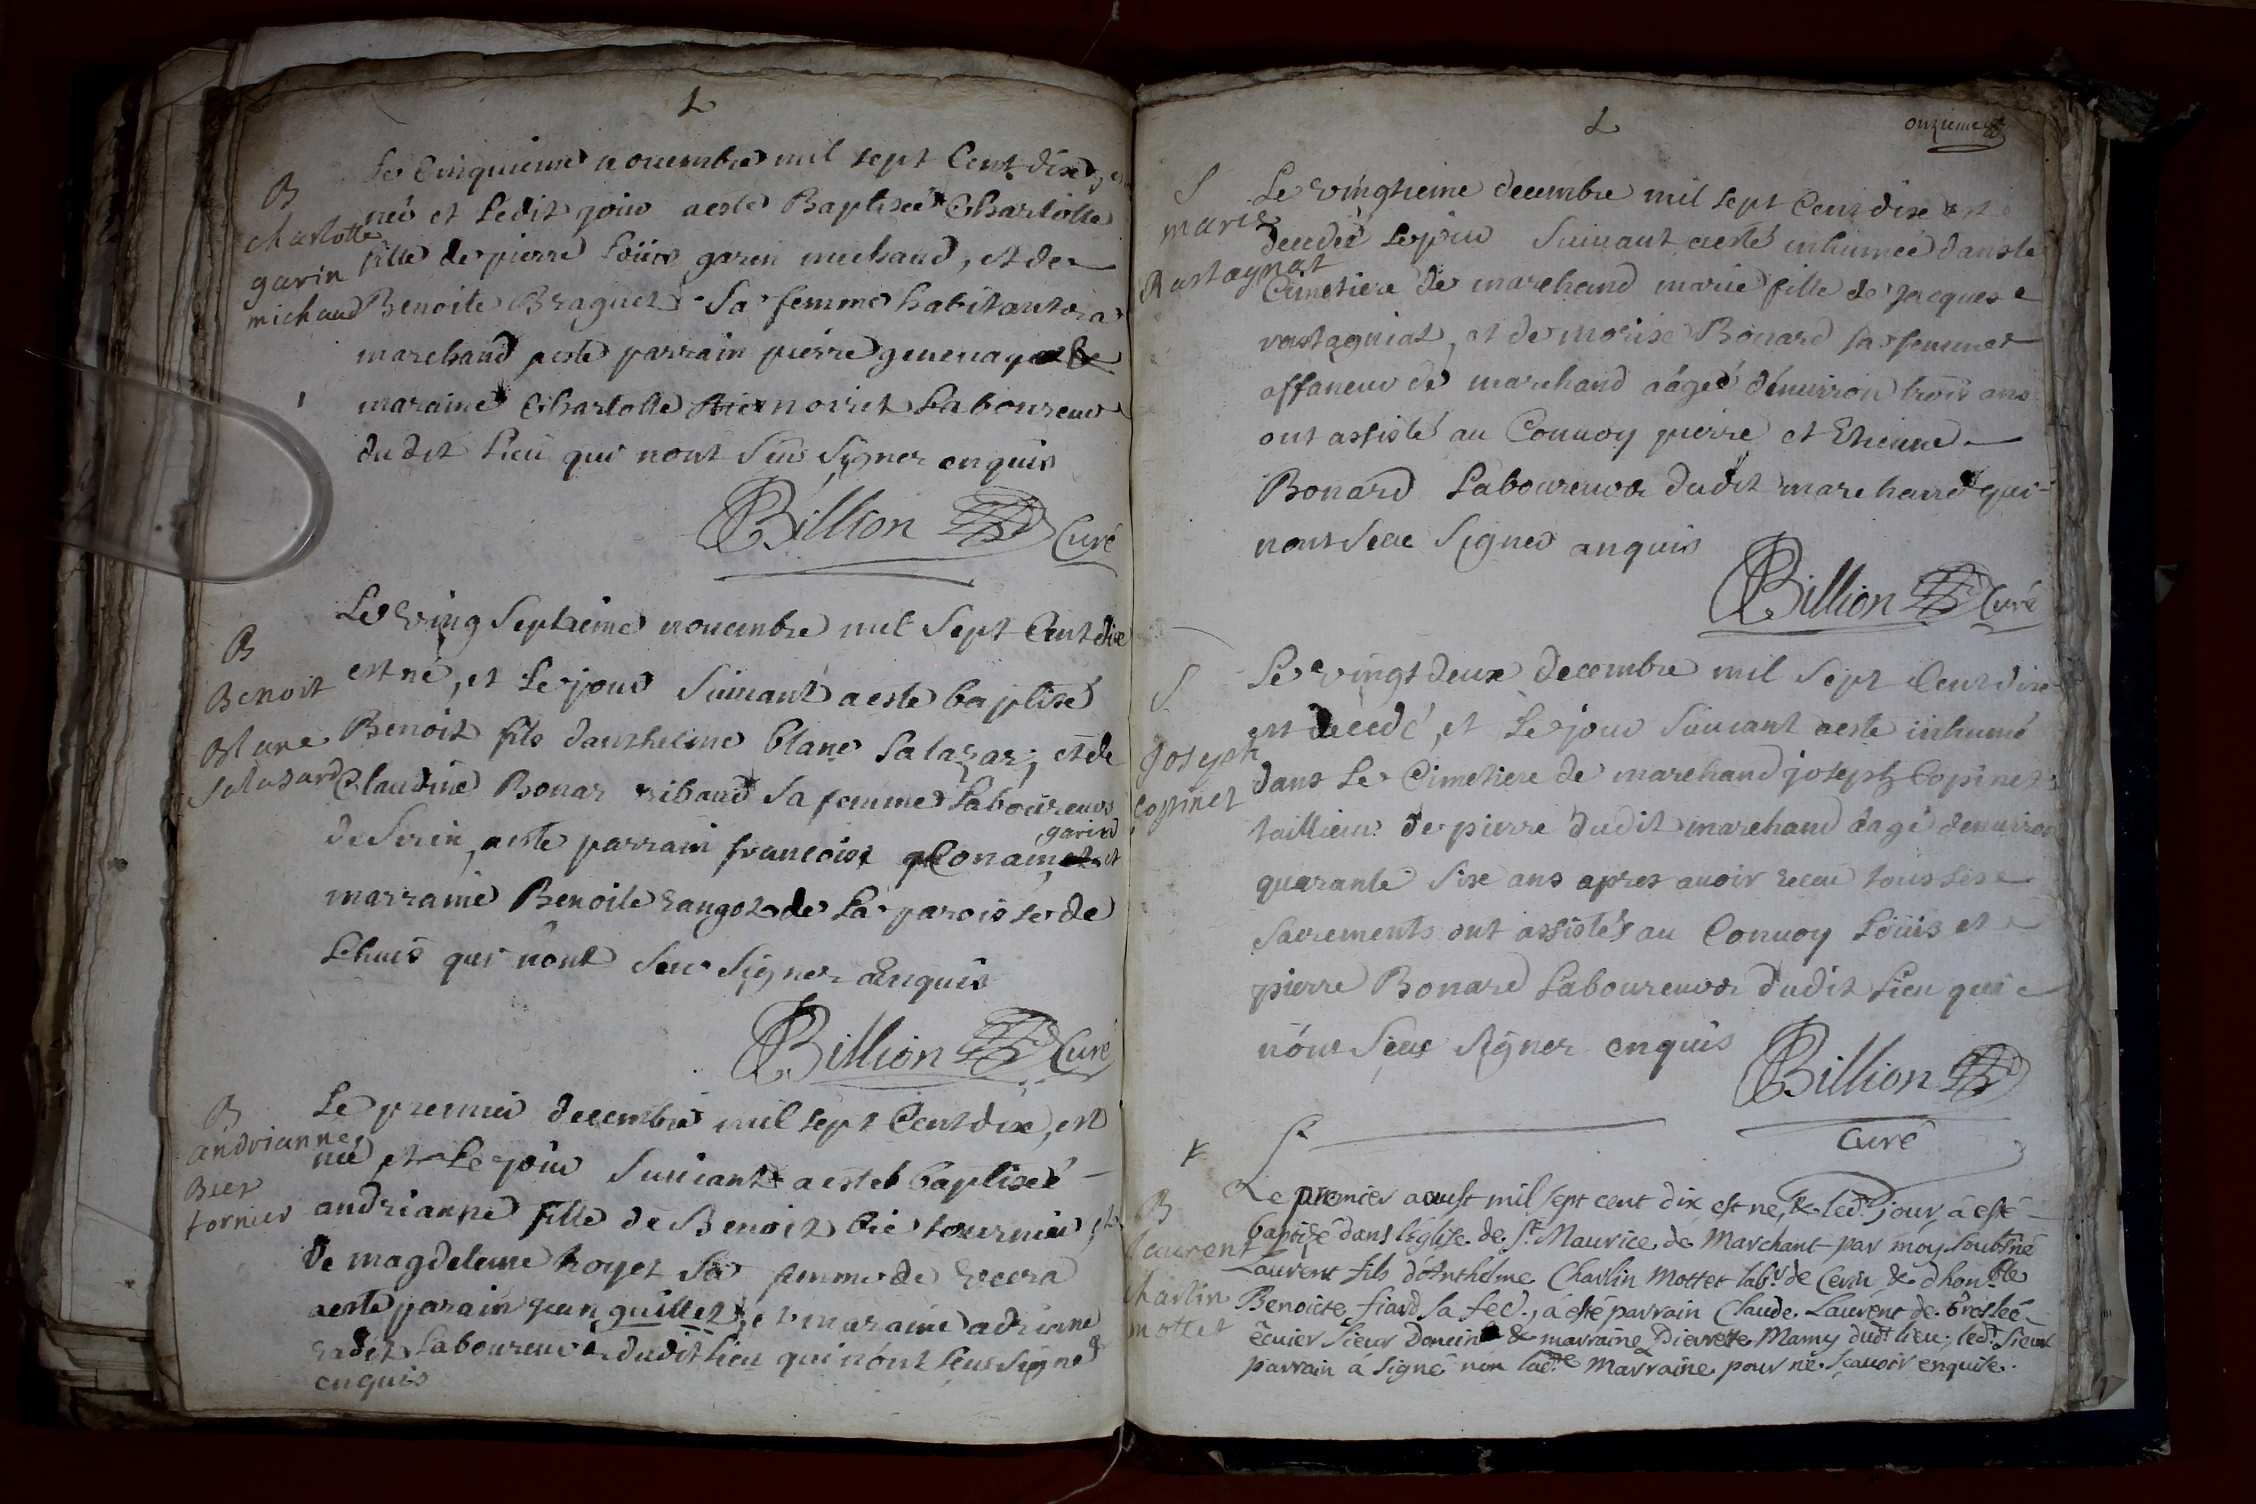 B
charlotte
garin
michaud
Le Cinquieme novembre mil sept Cent dix est
neé et Ledit jour aesté Baptiseé Charlotte
fille de pierre Loüis garin michaud, et de
Benoite Braguet sa femme habitant a
marchand aesté parrain pierre et
maraine Charlotte noiret Laboureur
dudit Lieu qui nont sçu signer enquis
Billion Curé
B
Benoit
Blanc
salazard
Le ving septieme novembre mil sept Cent dix
est né, et Le jour suivant aesté baptisé
Benoit fils danthelme blanc salazar, et de
Claudine Bonar ribaud sa femme Laboureurs
de Serin, aesté parrain francois Conain, garin et
marraine Benoite rangot de La paroisse de
Lhuis qui nont sceu signer Enquis
Billion Curé
B
andrianne
Biez
tornier
Le premier decembre mil sept Cent dix, est
neé et Le jour suivant aesté baptiseé
andrianne fille de Benoit bié tournier, et
de magdeleine hoyet sa femme de
aesté parain jean guillet, et maraine adrianne
radet Laboureur dudit lieu qui nont sçeu signer
enquis
onzieme
S
marie
Rastagnat
Le vingtieme decembre mil sept Cent dix est
decedeé Le jour suivant aesté inhumeé dans le
Cimetiere de marchand marie fille de jacques
rastagniat, et de morise Bonard sa femme
affaneur de marchand aágeé d'environ trois ans
ont assisté au Convoy pierre et Etienne
Bonard Laboureurs dudit marchand qui
nont sceu signer anquis
Billion Curé
S
joseph
Copinet
Le vingt deux decembre mil sept Cent dix
est decedé, et Le jour suivant aesté inhumé
dans Le Cimetiere de marchand joseph Copinet
taillieur de pierre dudit marchand aagé denviron
quarante six ans apres avoir receu tous ses
sacrements ont assistés au Convoy Loüis et
pierre Bonard Laboureurs dudit Lieu qui
nónt sçeu signer enquis
Billion
Curé
B
laurent
charlin
mottet
Le premier aoust mil sept cent dix est né, & led.t jour, à esté
baptisé dans l'Eglise de S.t Maurice de Marchant par moy soubsné
Laurent fils d'Anthelme Charlin Mottet lab.r de Cerin & d'hon.ble
Benoiste fiard sa fe., à esté parrain Claude Laurent de Groslée
écuier sieur & marraine Pierrette Mamy dud.t lieu; led.t sieur
parrain a signé non lad.te Marraine pour ne sçavoir enquise.